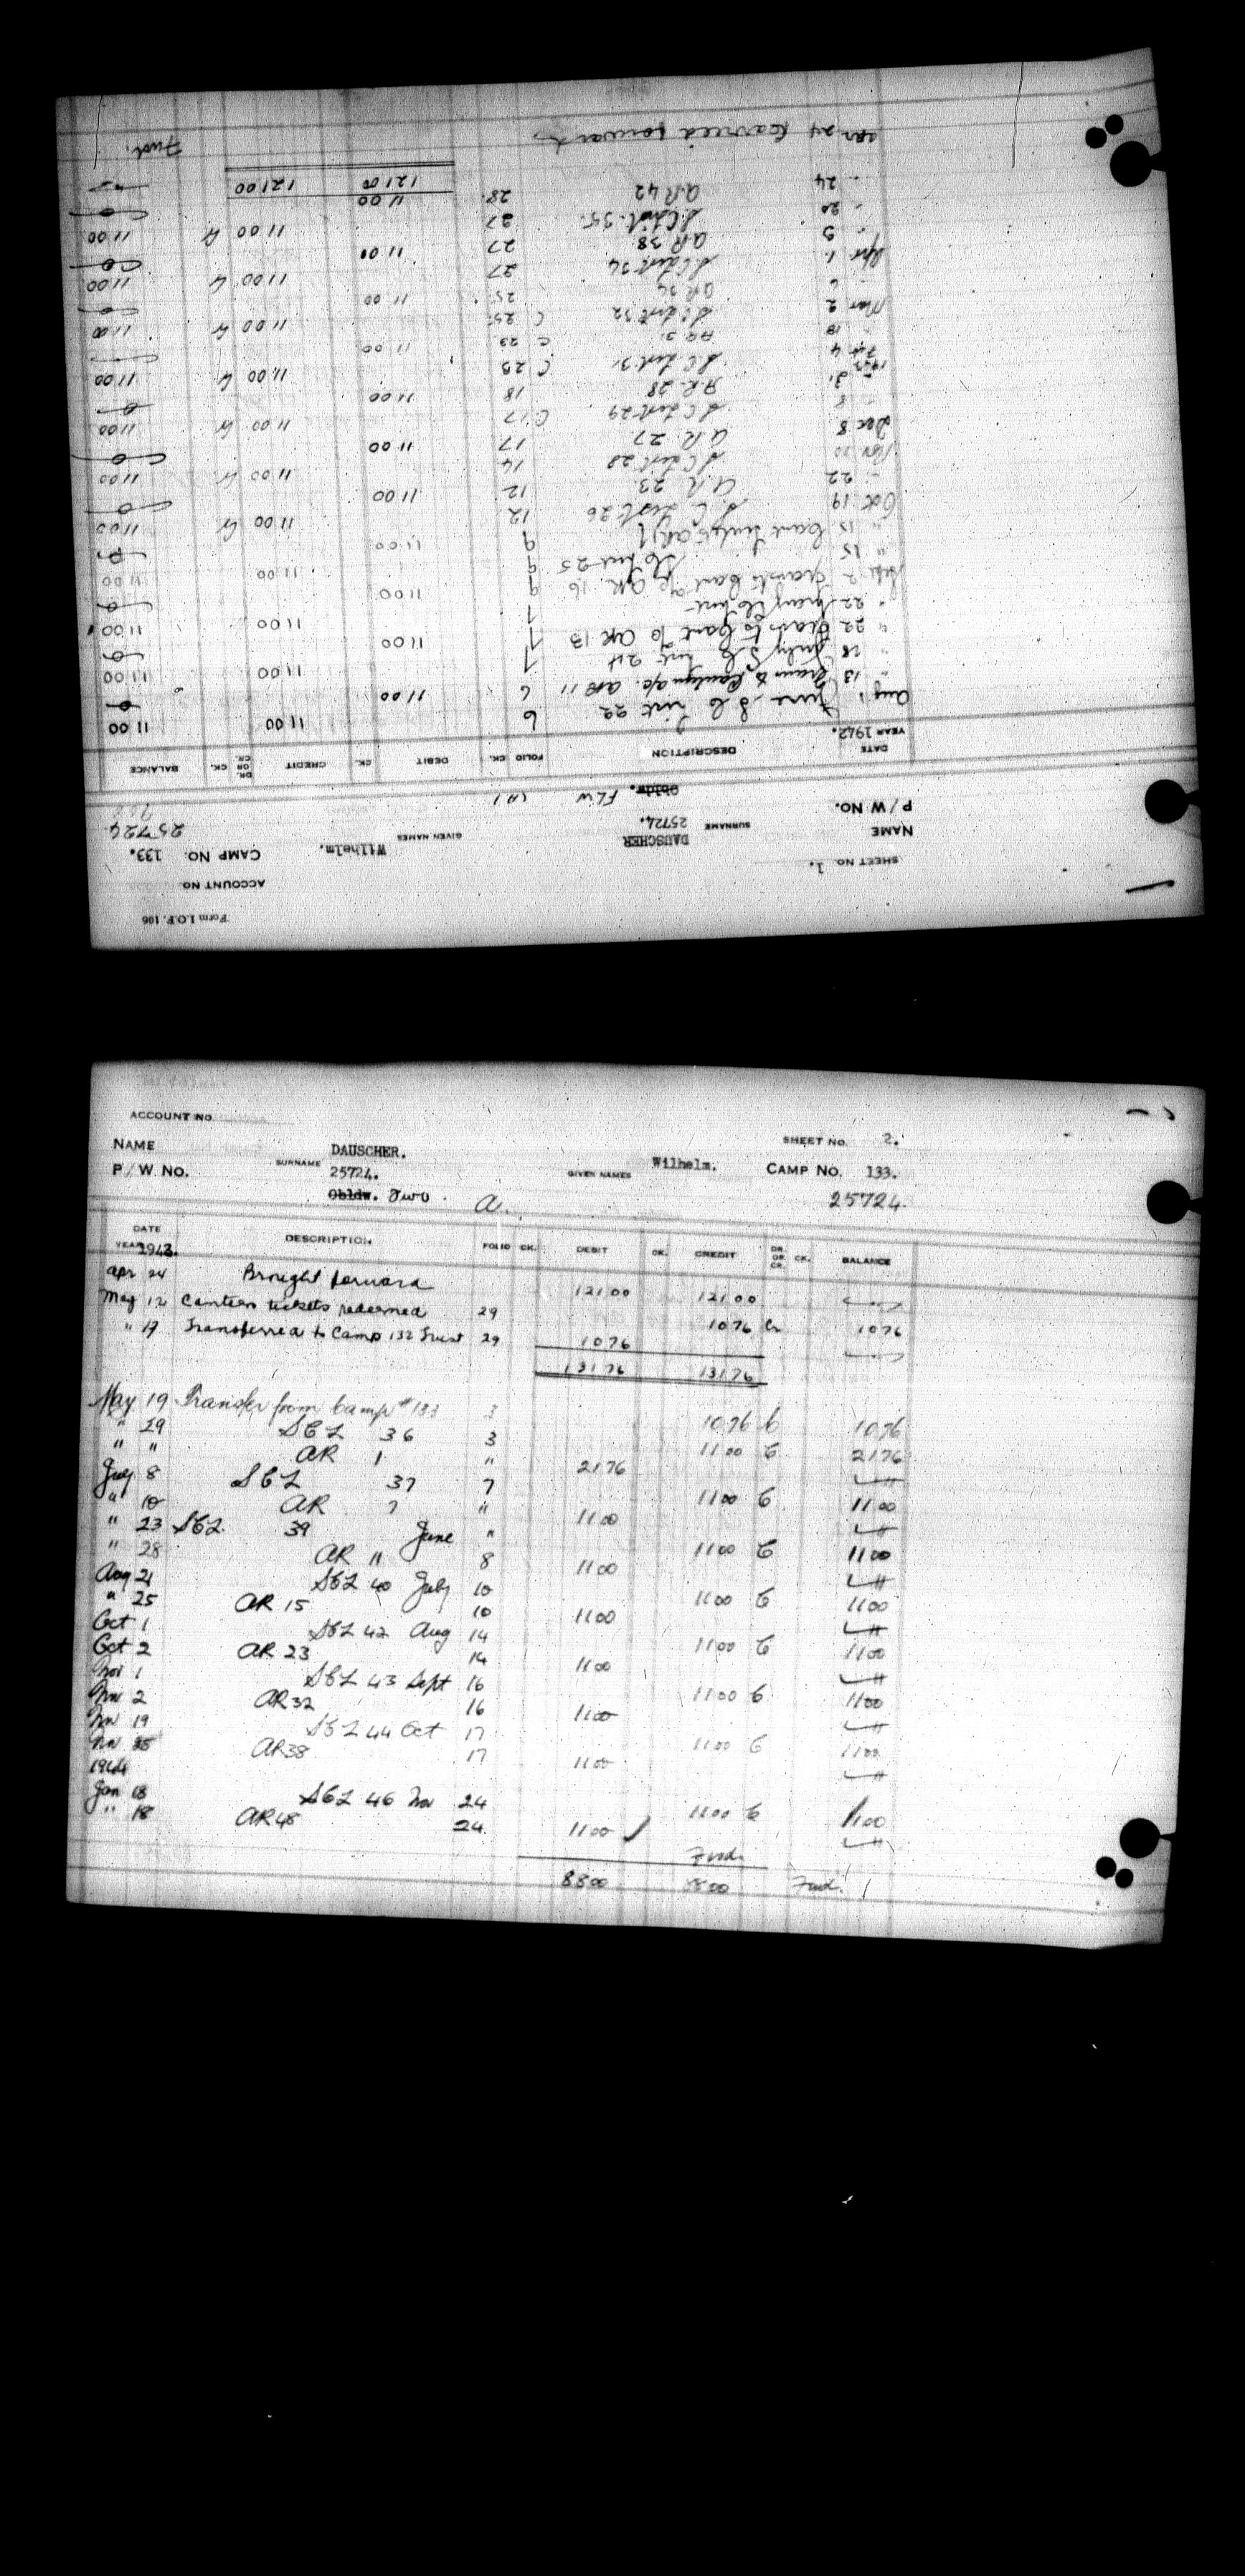 Form I.O.F. 106
ACCOUNT NO.
SHEET NO. 1.
NAME DAUSCHER SURNAME Wilhelm. GIVEN NAMES CAMP NO. 133.
P / W. NO. 25724. 25724
Obldw. FLW
DATE YEAR 1942. DESCRIPTION FOLIO CK. DEBIT CK. CREDIT DR. OR CR. CK. BALANCE
Aug 1 June S C List 22 6 11 00 11 00
" 13 Trans to Canteen a/c. AR 11 6 11 00
" 18 July S C List 24 7 11 00 11 00
" 22 Trans to Cant AR 13 7 11 00
" 22 7 11 00 11 00
Sept 2 Trans to Cant a/c AR 16 9 11 00
" 15 List 25 9 11 00 11 00
" 15 9 11 00
Oct 19 S. C. List 26 12 11 00 Cr 11 00
" 22 A R 23 12 11 00
Nov 20 S C List 28 14 11 00 Cr 11 00
Dec 8 A R 27 17 11 00
" 8 S C List 29 C 17 11 00 Cr 11 00
" 31 A.R. 28 18 11 00
1943
Feb 4 S C List 31 C 23 11 00 Cr 11 00
" 18 AR 31 C 23 11 00
Mar 2 S C List 32 C 25 11 00 Cr 11 00
" 6 AR 34 25 11 00
Apr 1 S C List 34 27 11 00 Cr 11 00
" 5 AR 38 27 11 00
" 20 S. C List 35 27 11 00 Cr 11 00
" 24 AR 42 28 11 00
121 00 121 00
Apr 24 Carried forward Fwd.
ACCOUNT NO.
SHEET NO. 2.
NAME SURNAME DAUSCHER. GIVEN NAMES Wilhelm. CAMP NO. 133.
P / W. NO. 25724. 25724
Obldw. Two A.
DATE YEAR 1943. DESCRIPTION FOLIO CK. DEBIT CK. CREDIT DR. OR CR. CK. BALANCE
Apr 24 Brought forward 121 00 121 00
May 12 Canteen tickets redeemed 29 10 76 Cr 10 76
" 17 Transferred to Camp 132 Trust 29 10 76
131 76 131 76
May 19 Transfer from Camp #133 3 10 76 C 10 76
" 29 SCL 36 3 11 00 C 21 76
" " AR 1 " 21 76
July 8 SCL 37 7 11 00 C 11 00
" 10 AR 7 " 11 00
" 23 SCL 39 June " 11 00 C 11 00
" 28 AR 11 8 11 00
Aug 21 SCL 40 July 10 11 00 C 11 00
" 25 AR 15 10 11 00
Oct 1 SCL 42 Aug 14 11 00 C 11 00
Oct 2 AR 23 14 11 00
Nov 1 SCL 43 Sept 16 11 00 C 11 00
Nov 2 AR 32 16 11 00
Nov 19 SCL 44 Oct 17 11 00 C 11 00
Nov 25 AR 38 17 11 00
1944
Jan 18 SCL 46 Nov 24 11 00 C 11 00
" 18 AR 48 24 11 00
Fwd.
88 00 88 00 Fwd.